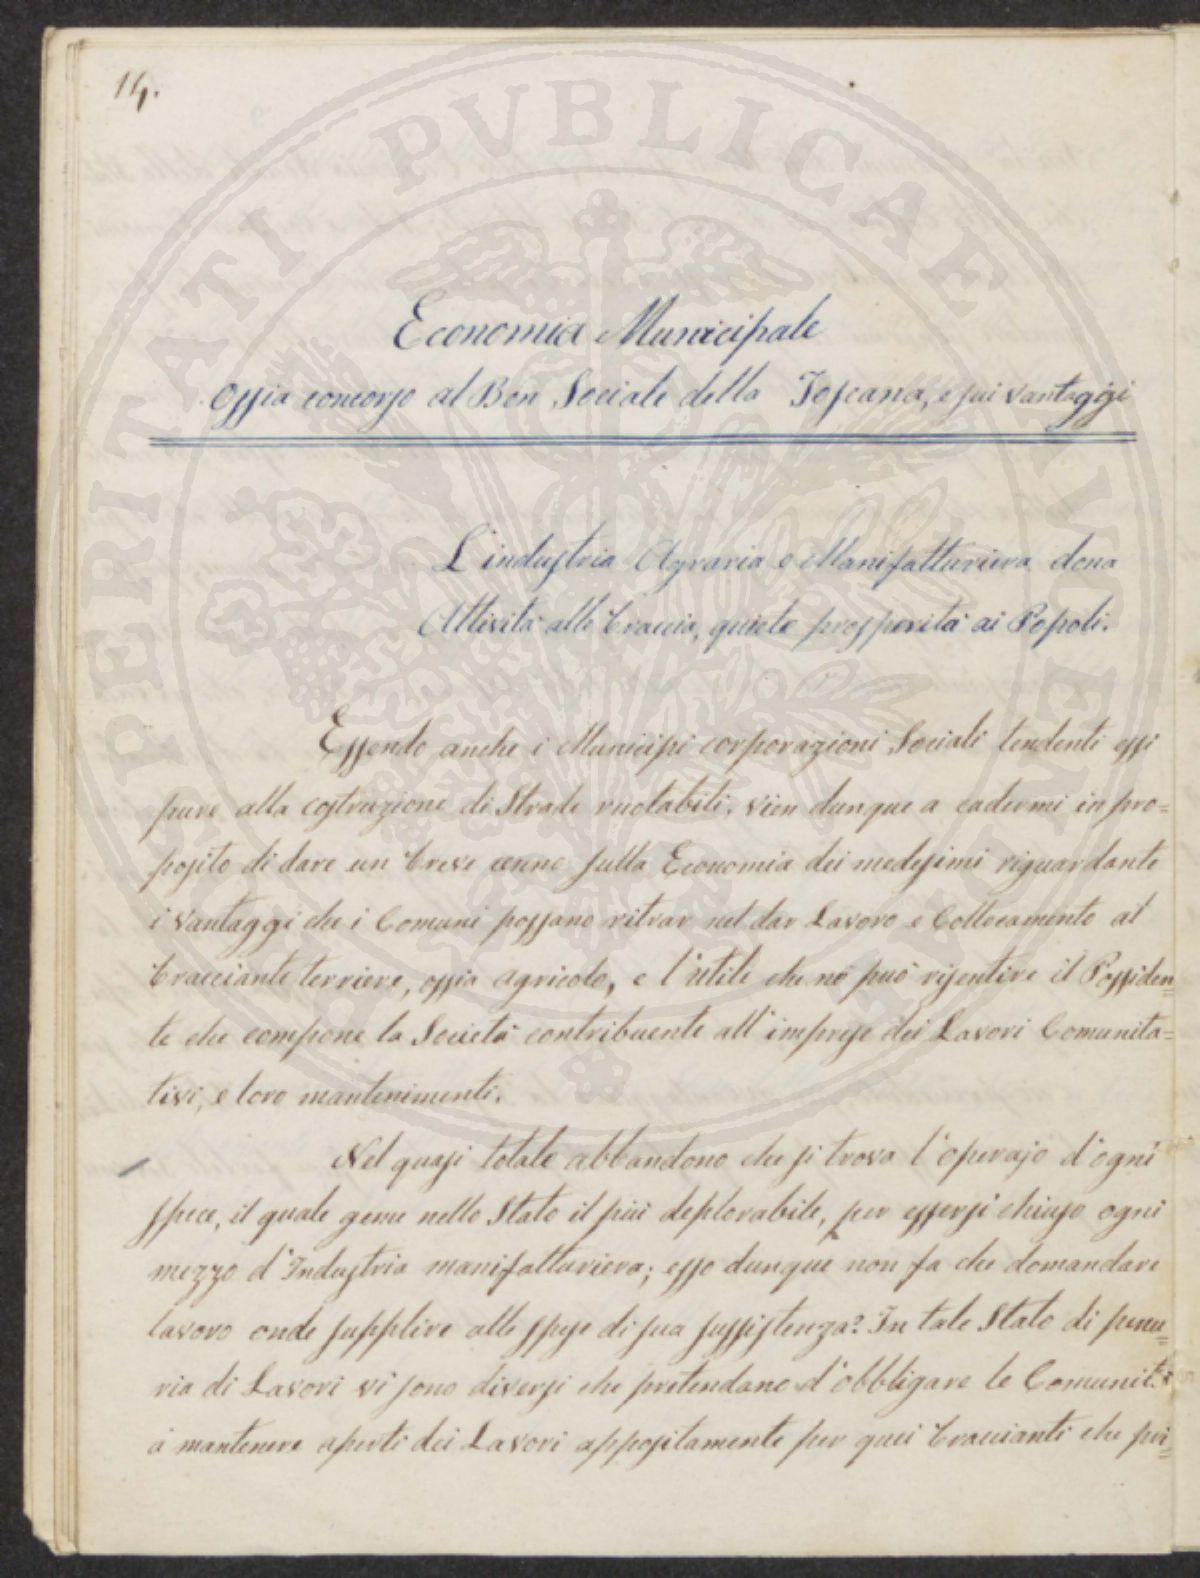 14.
PROSPERITATI PUBLICAE AUGENDAE
Economia Municipale
Ossia concorso al Ben Sociale della Toscana, e sui vantaggi
L'industria Agraria e Manifatturiera dona
Attività alle braccia, quiete prosperità ai Popoli.
Essendo anche i Municipi corporazioni Sociali tendenti essi
pure alla costruzione di Strade ruotabili, vien dunque a cadermi in pro=
posito di dare un breve cenno sulla Economia dei medesimi riguardante
i vantaggi che i Comuni possano ritrar nel dar Lavoro e Collocamento al
bracciante terriere, ossia agricolo, e l'utile che nè può risentire il Possiden=
te che compone la Società contribuente all'imprese dei Lavori Comunita=
tivi, e loro mantenimenti.
Nel quasi totale abbandono che si trova l'operajo d'ogni
spece, il quale geme nello Stato il più deplorabile, per essersi chiuso ogni
mezzo d'Industria manifatturiera; esso dunque non fa che domandare
lavoro onde supplire alle spese di sua sussistenza? In tale Stato di penu=
ria di Lavori vi sono diversi che pretendano d'obbligare le Comunità
a mantenere aperti dei Lavori appositamente per quei braccianti che pri=